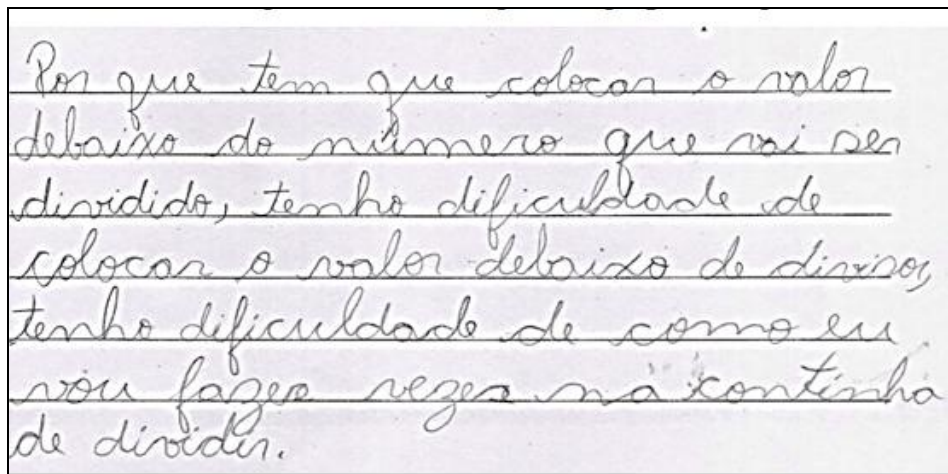 Por que tem que colocar o valor
debaixo do número que vai ser
dividido, tenho dificuldade de
colocar o valor debaixo do divisor,
tenho dificuldade de como eu
vou fazer vezes na continha
de dividir.